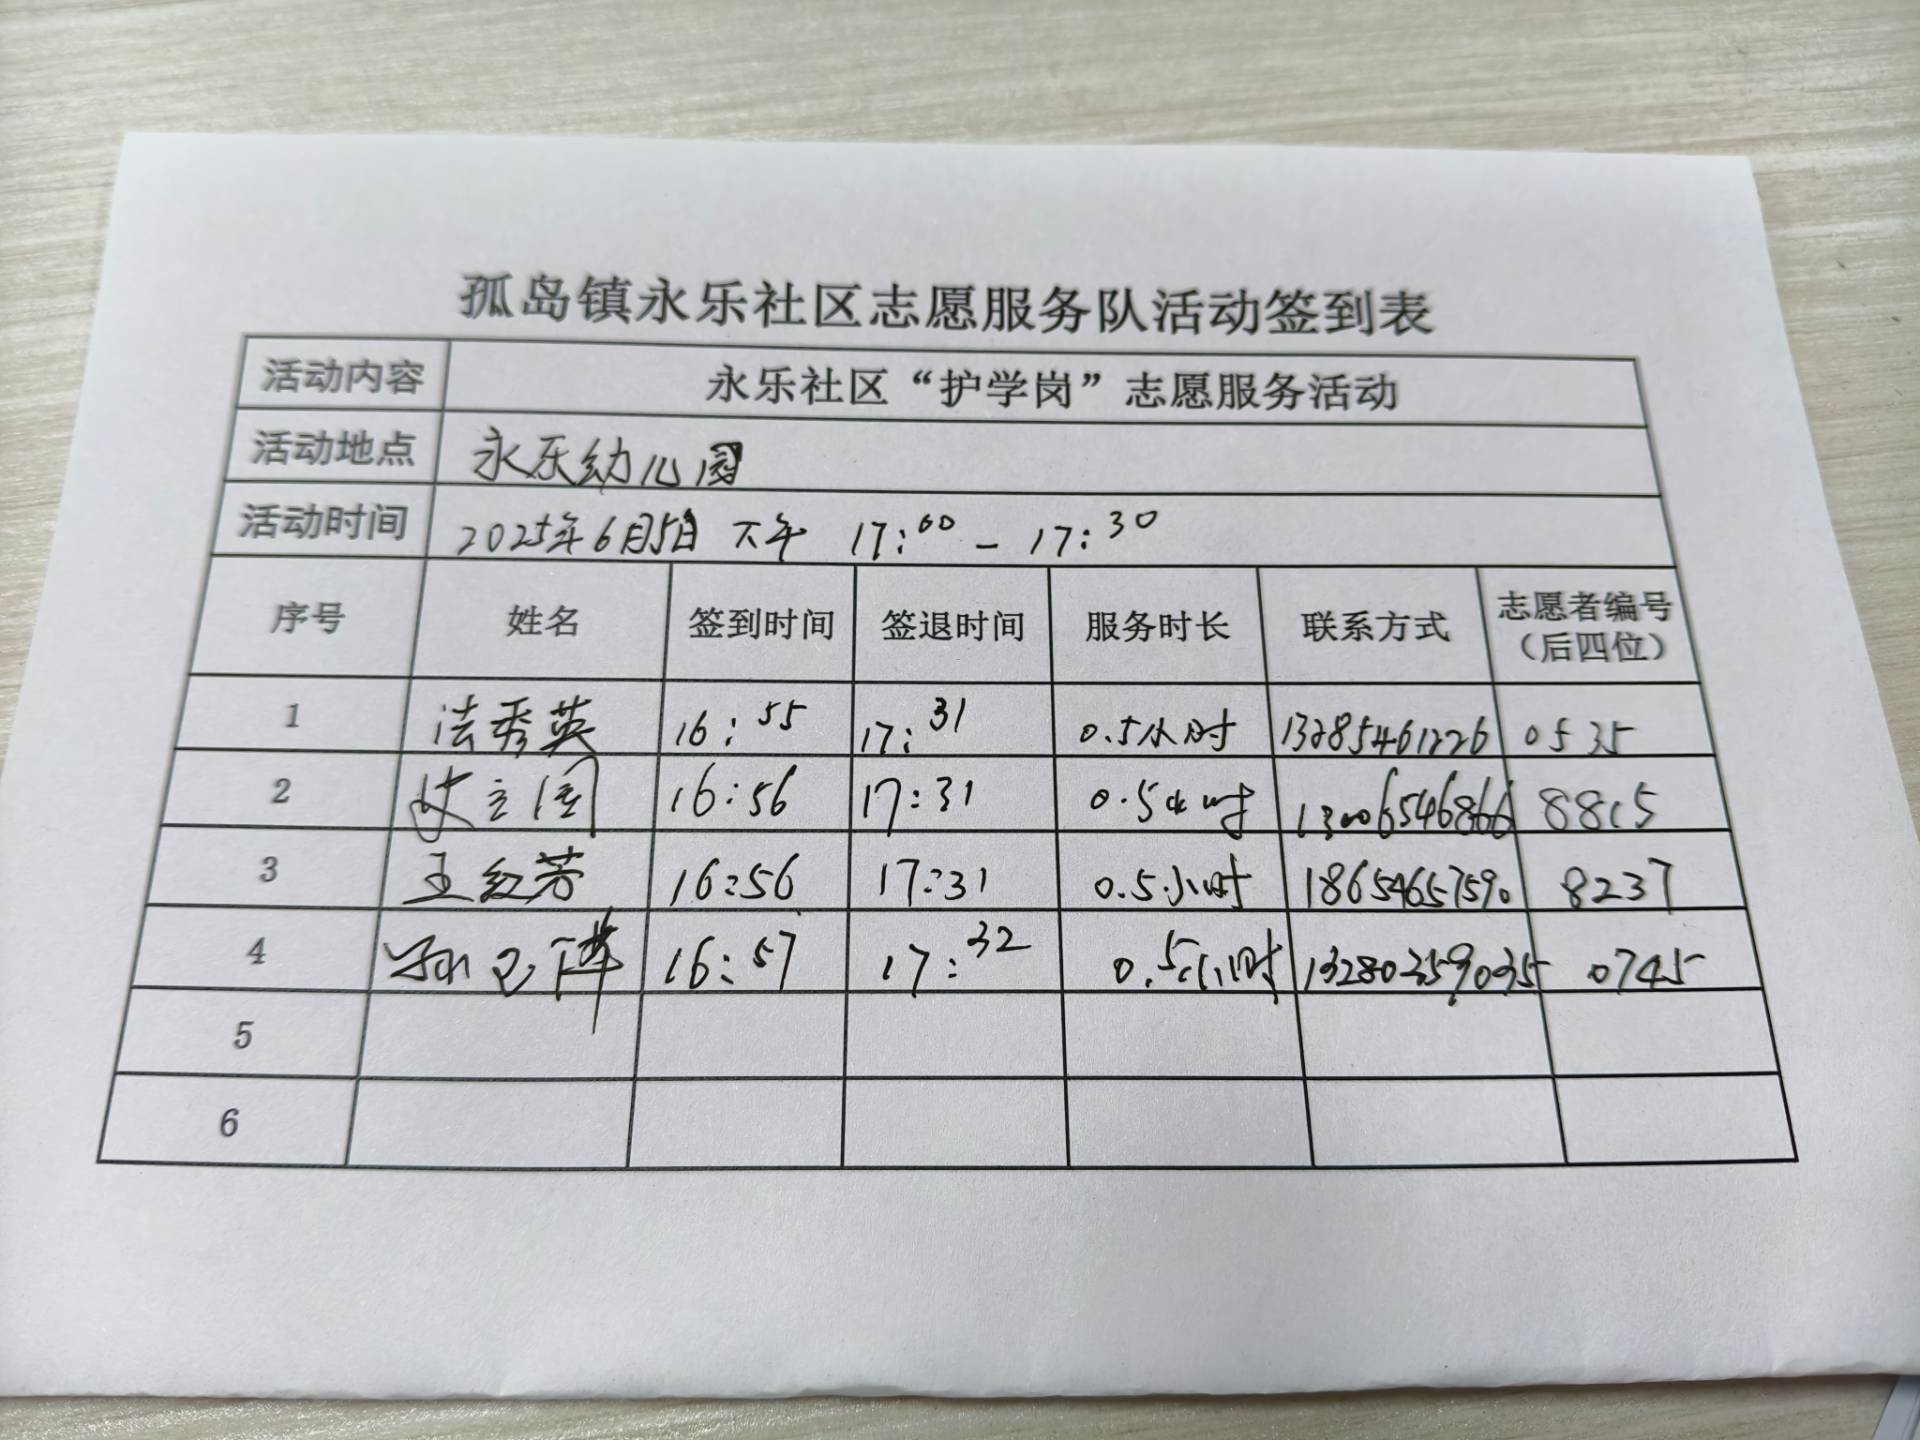 孤岛镇永乐社区志愿服务队活动签到表
活动内容 永乐社区“护学岗”志愿服务活动
活动地点 永乐幼儿园
活动时间 2025年6月5日 下午 17:00-17:30
序号 姓名 签到时间 签退时间 服务时长 联系方式 志愿者编号（后四位）
1 法秀英 16:55 17:31 0.5小时 13285461226 0535
2 16:56 17:31 0.5小时 13006546866 8815
3 王红芳 16:56 17:31 0.5小时 18654657590 8237
4 16:57 17:32 0.5小时 13280359035 0745
5
6